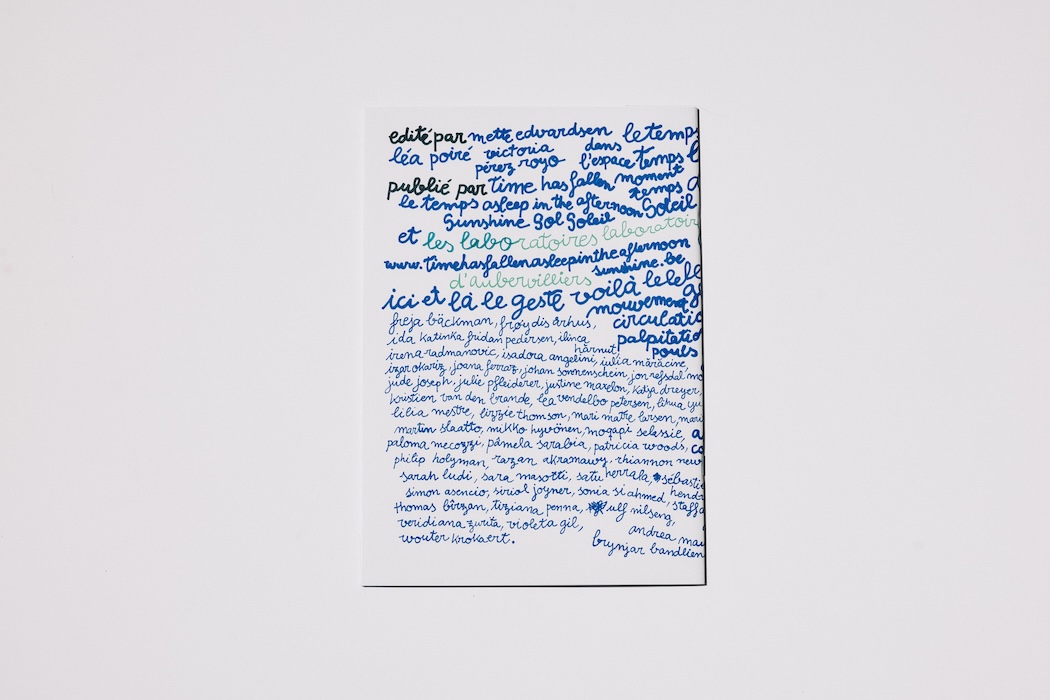 edité par mette edvardsen le temps
léa poiré victoria dans
pérez royo l'espace temps
publié par time has fallen moment
le temps asleep in the afternoon temps
Sunshine Sol Soleil Soleil
et les laboratoires laboratoir
www.timehasfallenasleepintheafternoon
sunshine.be
d'aubervilliers
ici et là le geste voilà le
mouvement
freja bäckman, frøydis århus, circulatio
ida katinka fridan pedersen, ilinca palpitatio
hărnuț pouls
irena radmanovic, isadora angelini, iulia mărăcine,
izar okariz, joana ferraz, johan sonnenschein, jon refsdal mo
jude joseph, julie pfleiderer, justine maxelon, katja dreyer,
kristien van den brande, léa vendelbo petersen, lihua yu
lilia mestre, lizzie thomson, mari matre larsen, mari
martin slaatto, mikko hyvönen, mogapi selassie, a
paloma mecozzi, pámela sarabia, patricia woods, co
philip holyman, razan akramawy, rhiannon new
sarah ludi, sara masotti, satu herrala, sébastie
simon asencio, siriol joyner, sonia si ahmed, hendr
thomas bîrzan, tiziana penna, ulf nilseng, staffa
veridiana zurita, violeta gil, andrea mai
wouter krokaert. brynjar bandlien